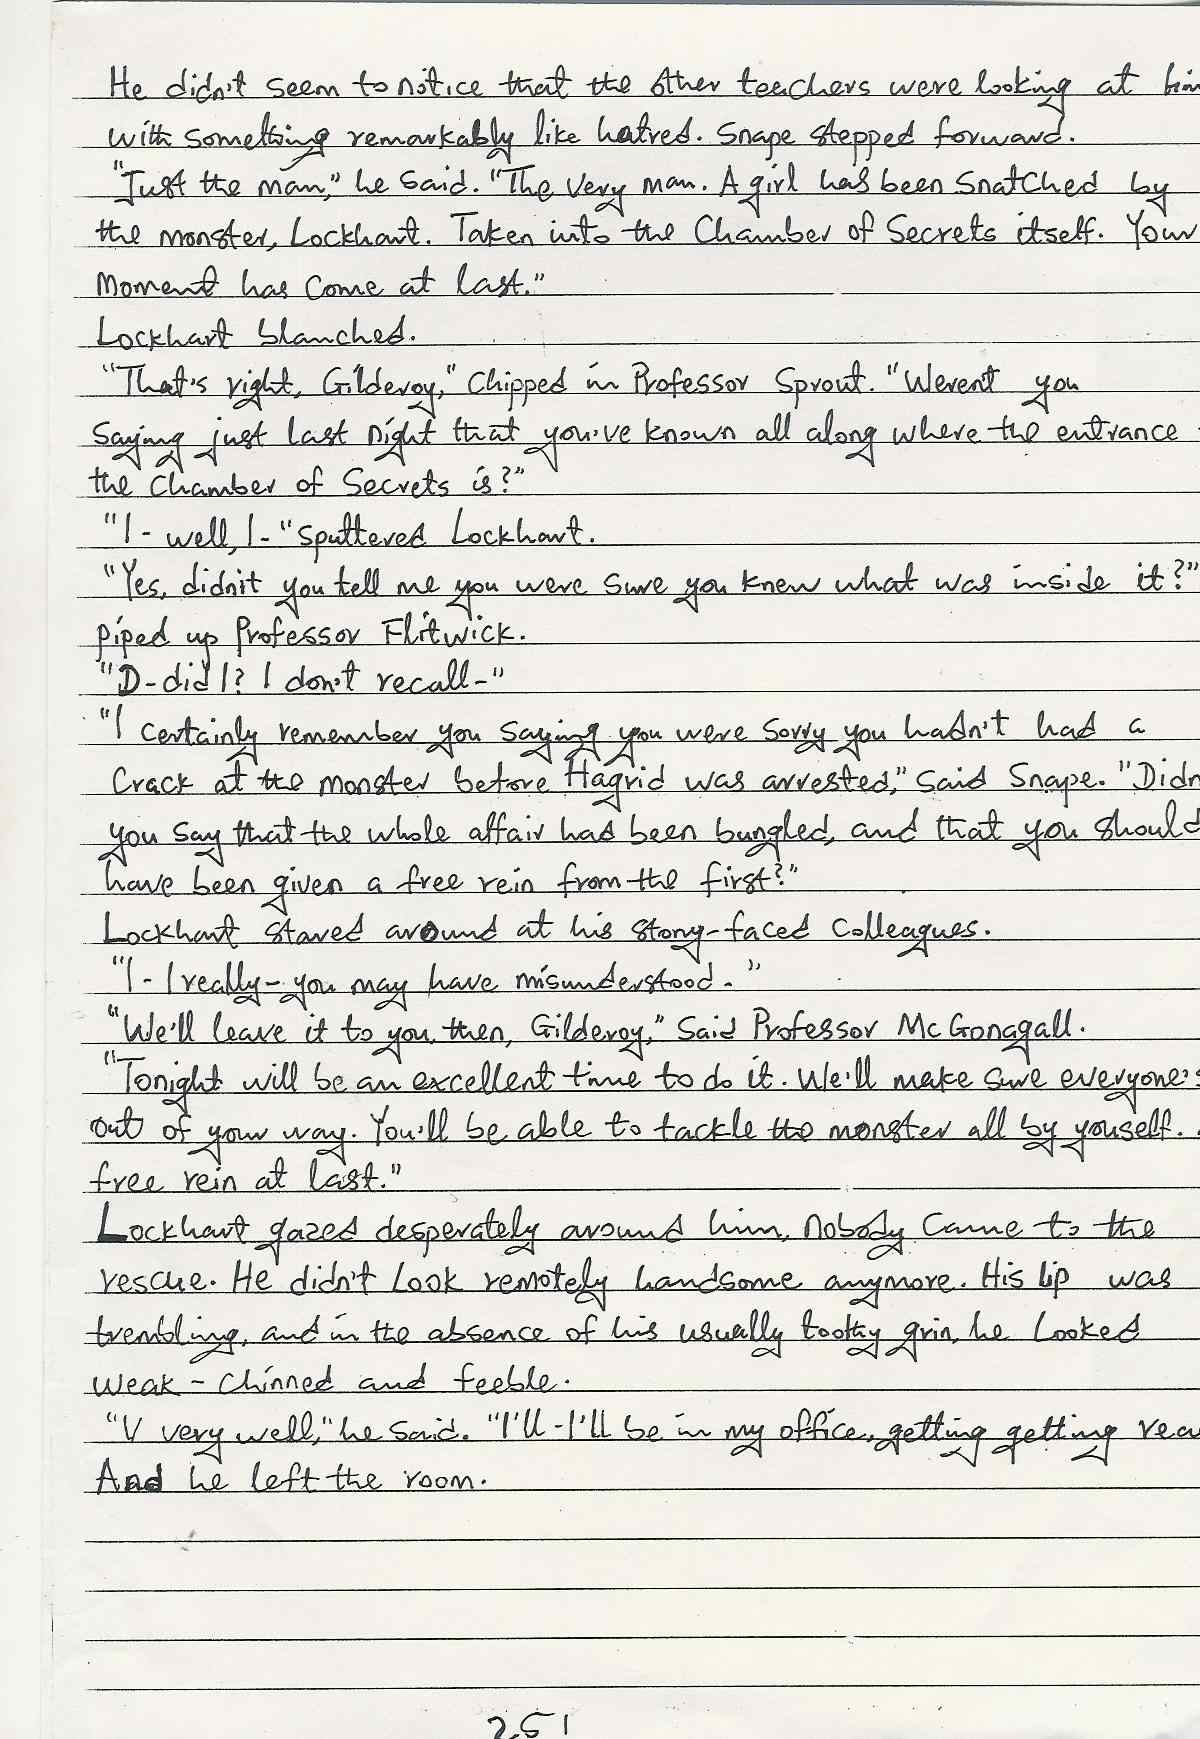 He didn't seem to notice that the other teachers were looking at him
with something remarkably like hatred. Snape stepped forward.
"Just the man," he said. "The very man. A girl has been snatched by
the monster, Lockhart. Taken into the Chamber of Secrets itself. Your
Moment has come at last."
Lockhart blanched.
"That's right, Gilderoy," Chipped in Professor Sprout. "Weren't you
Saying just last night that you've known all along where the entrance
the Chamber of Secrets is?"
"I - well, I - "sputtered Lockhart.
"Yes, didn't you tell me you were sure you knew what was inside it?"
piped up Professor Flitwick.
"D-did I? I don't recall-"
"I certainly remember you saying you were sorry you hadn't had a
Crack at the monster before Hagrid was arrested," said Snape. "Didn
you say that the whole affair had been bungled, and that you should
have been given a free rein from the first?"
Lockhart stared around at his stony-faced Colleagues.
"I - I really - you may have misunderstood - "
"We'll leave it to you, then, Gilderoy," Said Professor McGonagall.
"Tonight will be an excellent time to do it. We'll make sure everyone's
out of your way. You'll be able to tackle the monster all by youself.
free rein at last."
Lockhart gazed desperately around him, nobody came to the
rescue. He didn't Look remotely handsome anymore. His lip was
trembling, and in the absence of his usually toothy grin, he Looked
weak - chinned and feeble.
"V very well," he said. "I'll - I'll be in my office, getting getting rea
And he left the room.
251